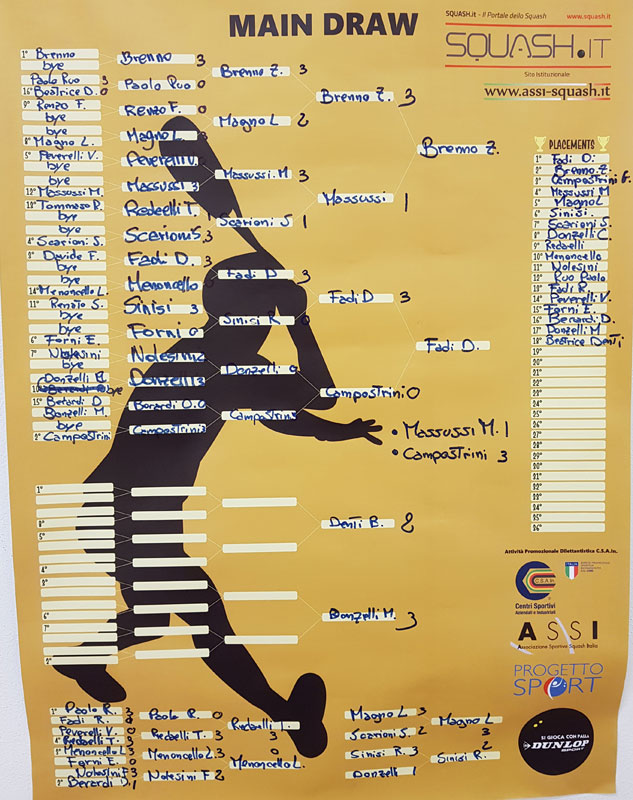 MAIN DRAW
SQUASH.it - Il Portale dello Squash www.squash.it
SQUASH.IT
Sito Istituzionale
www.assi-squash.it
1° Brenno
bye
Paolo Ruo 3
16° Beatrice D. 0
9° Renzo F.
bye
bye
8° Magno L.
5° Peverelli V.
bye
bye
12° Massussi M.
13° Tommaso R.
bye
bye
4° Scarioni S.
3° Davide F.
bye
bye
14° Menoncello L.
11° Renato S.
bye
bye
6° Forni E.
7° Nolesini
bye
Donzelli
10° bye
15° Berardi D.
Donzelli M.
bye
2° Campostrini
Brenno 3
Paolo Ruo 0
Renzo F. 0
Magno L.
Peverelli V.
Massussi 3
Redaelli T. 1
Scarioni S. 3
Fadi D. 3
Menoncello
Sinisi 3
Forni 0
Nolesini 2
Donzelli 3
Berardi D. 0
Campostrini
Brenno Z. 3
Magno L 2
Massussi M 3
Scarioni S 1
Fadi D 3
Sinisi R. 0
Donzelli 0
Campostrini
Brenno Z. 3
Massussi 1
Fadi D 3
Campostrini 0
Brenno Z.
Fadi D.
• Massussi M. 1
• Campostrini 3
PLACEMENTS
1° Fadi D.
2° Brenno Z.
3° Campostrini G.
4° Massussi M
5° Magno L
6° Sinisi.
7° Scarioni S.
8° Donzelli C.
9° Redaelli
10° Menoncello
11° Nolesini
12° Ruo Paolo
13° Fadi R.
14° Peverelli V.
15° Forni E.
16° Berardi D.
17° Donzelli M
18° Beatrice Denti
19°
20°
21°
22°
23°
24°
25°
26°
27°
28°
29°
30°
31°
32°
33°
34°
35°
36°
1°
8°
5°
4°
3°
6°
7°
2°
Denti B. 2
Donzelli M. 3
1° Paolo R. 3
Fadi R. 0
Peverelli V. 0
4° Redaelli T. 3
3° Menoncello L. 3
Forni E. 0
Nolesini F 3
2° Berardi D. 1
Paolo R. 0
Redaelli T. 3
Menoncello L. 3
Nolesini F 2
Redaelli T.
3
0
Menoncello L.
Magno L 3
Scarioni S. 2
Sinisi R. 3
Donzelli 1
Magno L
3
2
Sinisi R.
Attività Promozionale Dilettantistica C.S.A.In.
C.S.A.In
Centri Sportivi
Aziendali e Industriali
ASSI
Associazione Sportiva Squash Italia
PROGETTO
SPORT
SI GIOCA CON PALLA
DUNLOP
SPORT